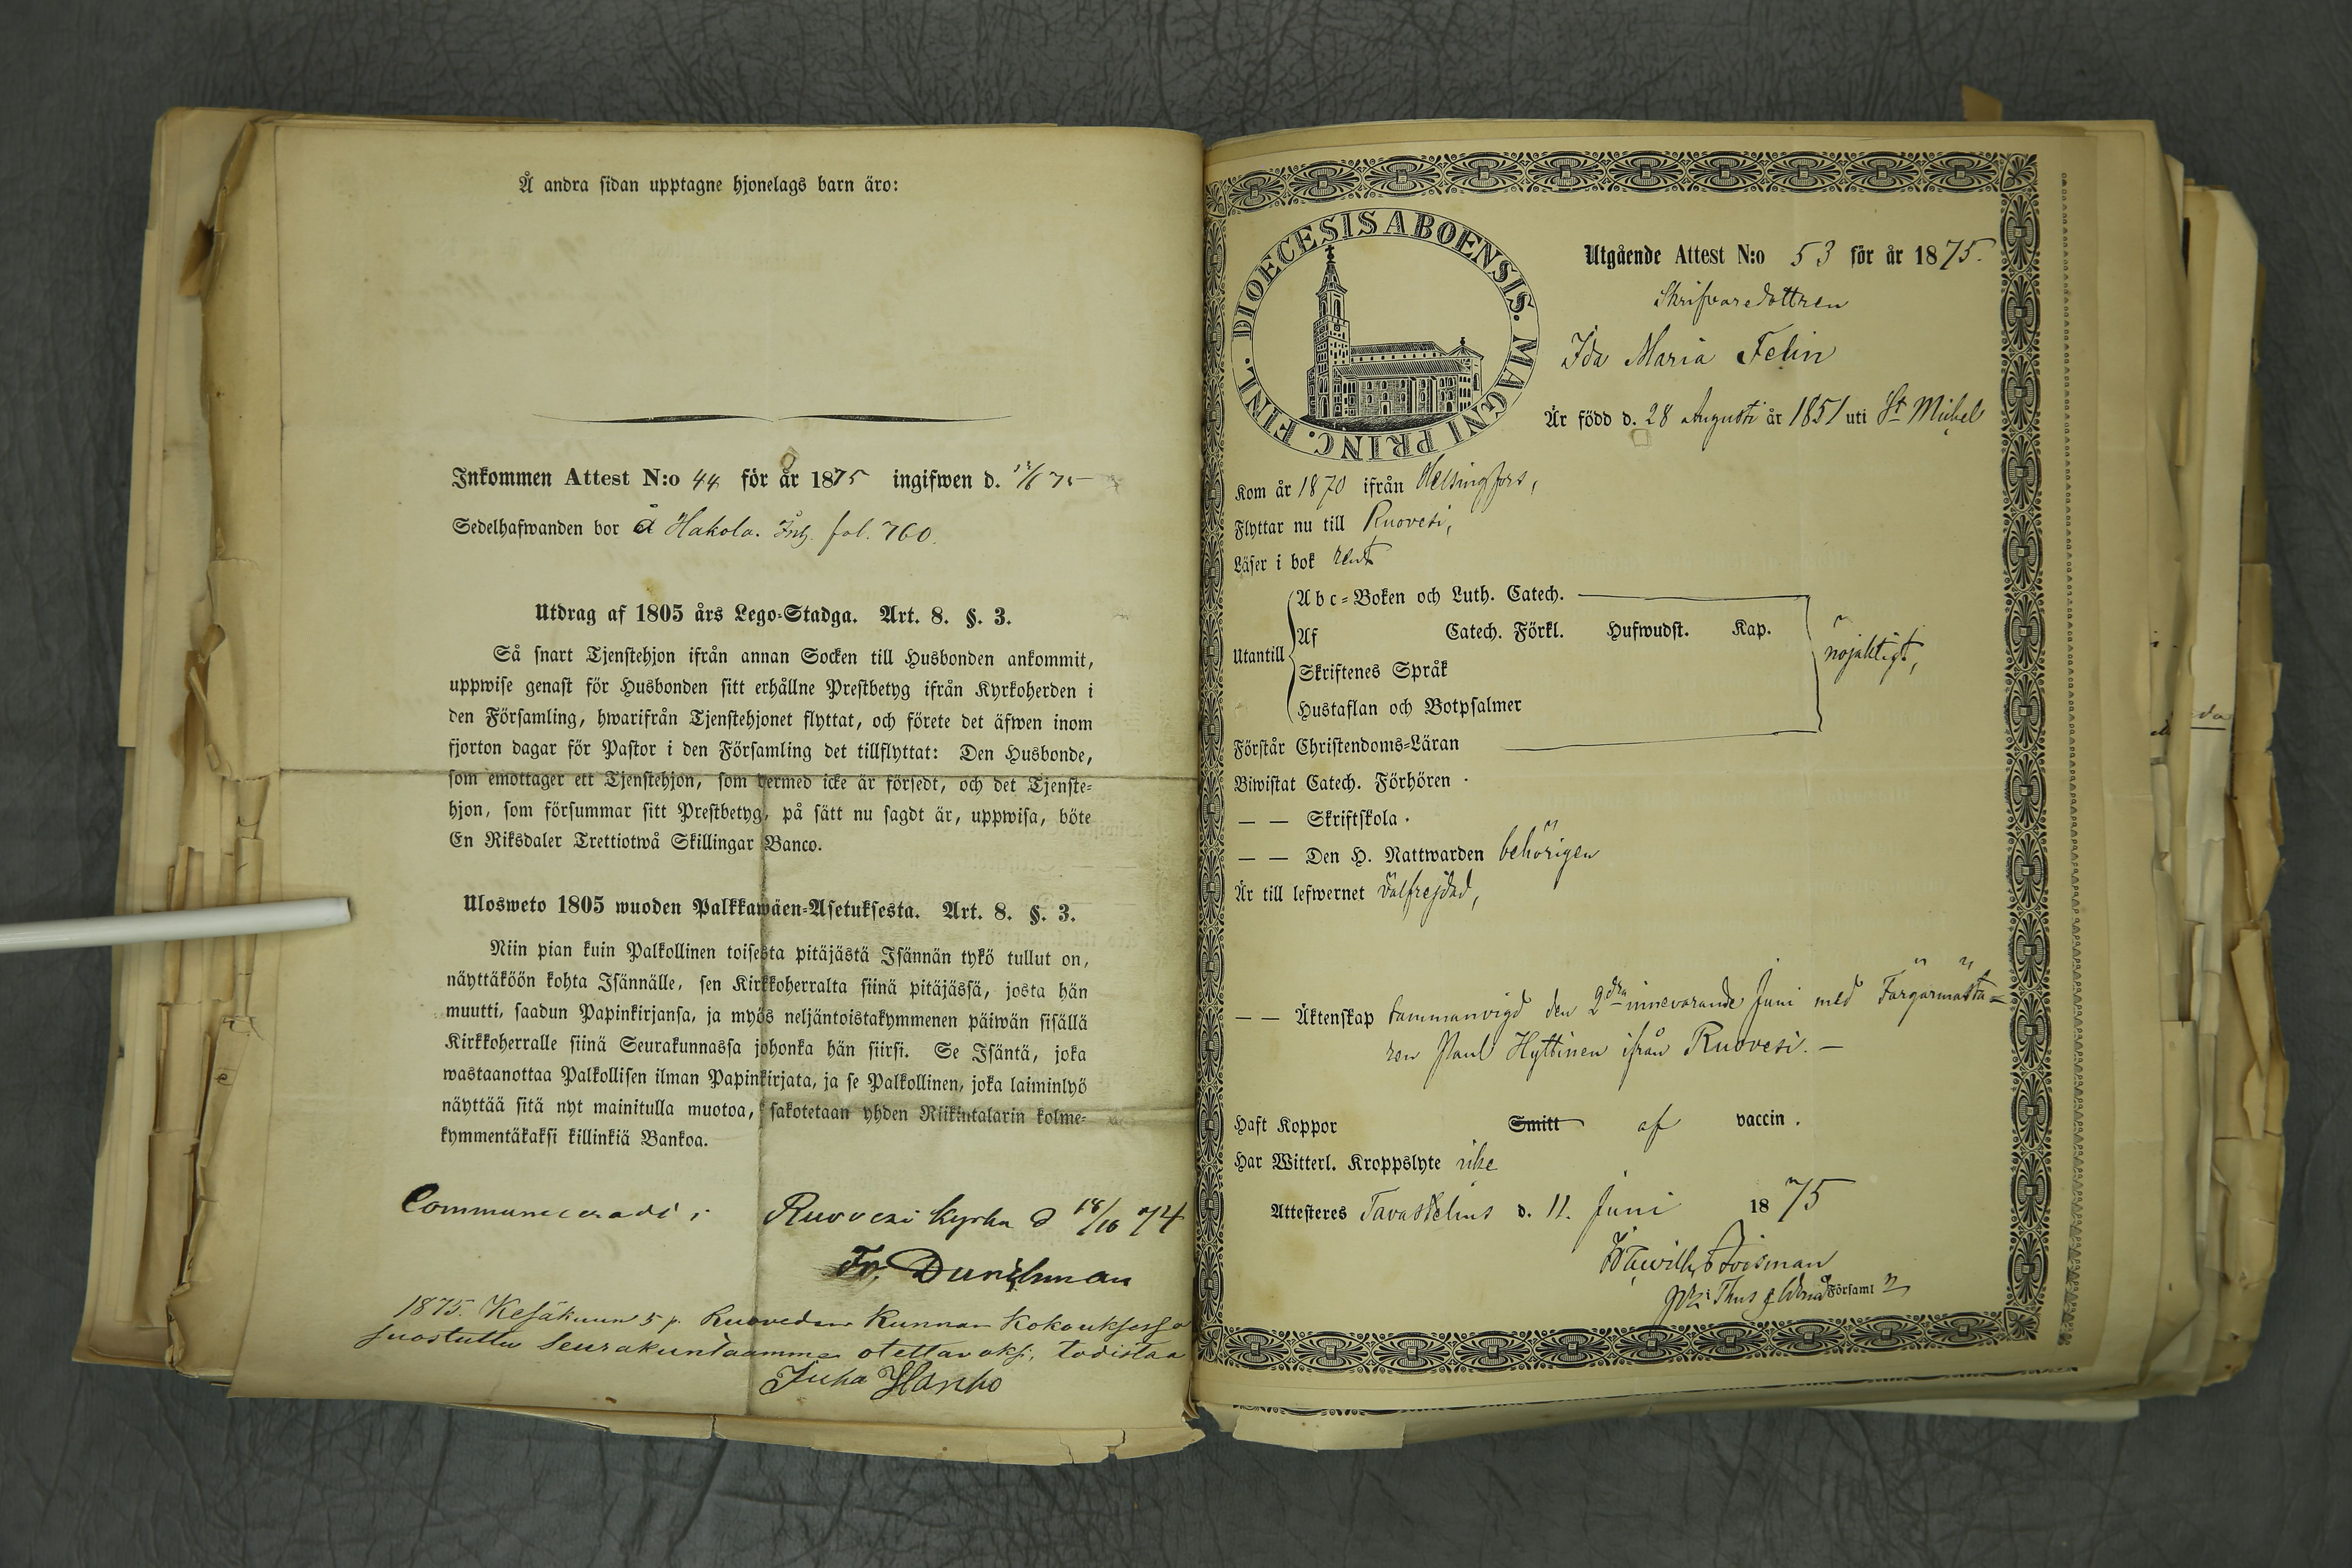 Å andra sidan upptagne hjonelags barn äro:
Inkommen Attest N:o 44 för år 1875 ingifwen d.
Sedelhafwanden bor å Hakola. Inh. fol. 760.
Utdrag af 1805 års Lego-Stadga. Art. 8. §. 3.
Så snart Tjenstehjon ifrån annan Socken till Husbonden ankommit,
uppwise genast för Husbonden sitt erhållne Prestbetyg ifrån Kyrkoherden i
den Församling, hwarifrån Tjenstehjonet flyttat, och förete det äfwen inom
fjorton dagar för Pastor i den Församling det tillflyttat: Den Husbonde,
som emottager ett Tjenstehjon, som dermed icke är försedt, och det Tjenste-
hjon, som försummar sitt Prestbetyg, på sätt nu sagdt är, uppwisa, böte
En Riksdaler Trettiotwå Skillingar Banco.
Ulosweto 1805 wuoden Palkkawäen-Asetuksesta. Art. 8. §. 3.
Niin pian kuin Palkollinen toisesta pitäjästä Isännän tykö tullut on,
näyttäköön kohta Isännälle, sen Kirkkoherralta siinä pitäjässä, josta hän
muutti, saadun Papinkirjansa, ja myös neljäntoistakymmenen päiwän sisällä
Kirkkoherralle siinä Seurakunnassa johonka hän siirsi. Se Isäntä, joka
wastaanottaa Palkollisen ilman Papinkirjata, ja se Palkollinen, joka laiminlyö
näyttää sitä nyt mainitulla muotoa, sakotetaan yhden Riikintalarin kolme-
kymmentäkaksi killinkiä Bankoa.
Communicerade i Ruovesi kyrka d 18/10 74
Fr. Dunchman
1875. Kesäkuun 5 p. Ruoveden Kunnan Kokouksessa
suostuttu Seurakuntaamme otettavaksi, todistaa
Juha Hanho
DIOECESIS ABOENSIS. MAGNI PRINC. FINL.
Utgående Attest N:o 53 för år 1875.
Skrifvaredottren
Ida Maria Felin
Är född d. 28 Augusti år 1851 uti St Michel
Kom år 1870 ifrån Helsingfors,
Flyttar nu till Ruovesi,
Läser i bok rent
Utantill
Abc-Boken och Luth. Catech.
Af Catech. Förkl. Hufwudst. Kap.
Skriftenes Språk
Hustaflan och Botpsalmer
nöjaktigt,
Förstår Christendoms-Läran
Biwistat Catech. Förhören
— — Skriftskola
— — Den H. Nattwarden behörigen
Är till lefwernet välfrejdad,
— — Äktenskap sammanvigd den 2dra innevarande Juni med Färgarmästa-
ren Paul Hyttinen ifrån Ruovesi. —
Haft Koppor Smitt af vaccin.
Har Witterl. Kroppslyte icke
Attesteres Tavastehus d. 11. Juni 1875
Församl